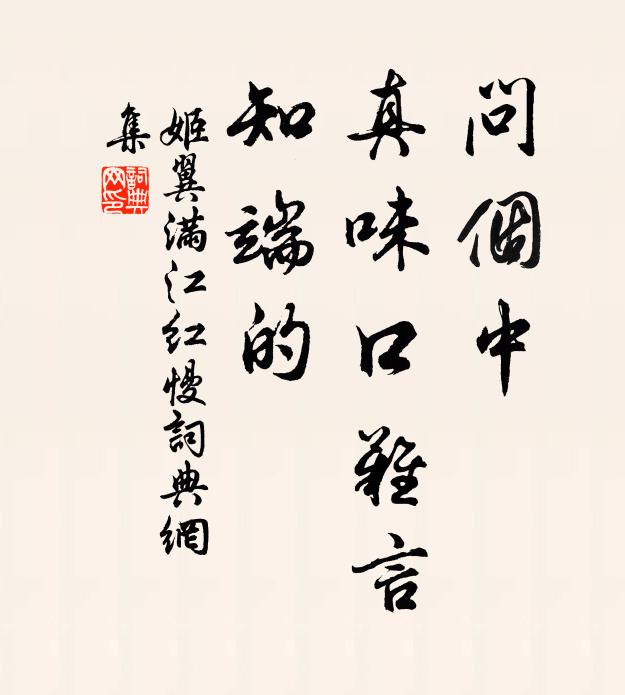 問個中
真味口難言
知端的
姬翼滿江紅慢詞典網
集
詞典
网印